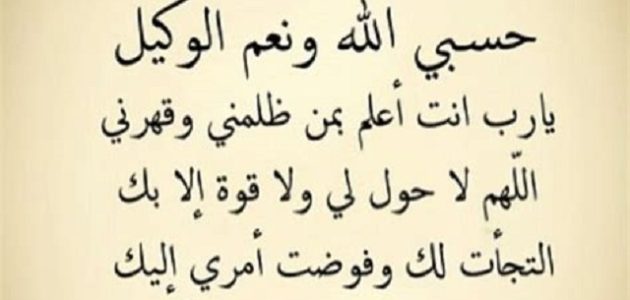 حسبي الله ونعم الوكيل
يارب انت أعلم بمن ظلمني وقهرني
اللّهم لا حول لي ولا قوة إلا بك
التجأت لك وفوضت أمري إليك